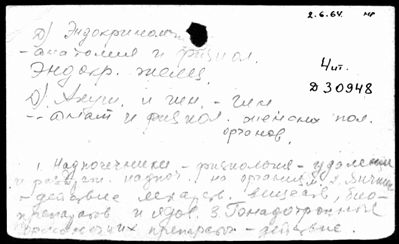 2.6.64. мр
Д) Эндокринол
- анатомия и физиол.
Эндокр. желез.
Чит.
Д 30948
Д) Акуш. и гин. - Гин
- - анат и физиол. женских пол.
органов.
1. Надпочечники - физиология - удаление
и надпоч. на организм. 2. Яичник
- действие лекарств. веществ, био-
препаратов и ядов. 3. Гонадотропные
препараты - действие.